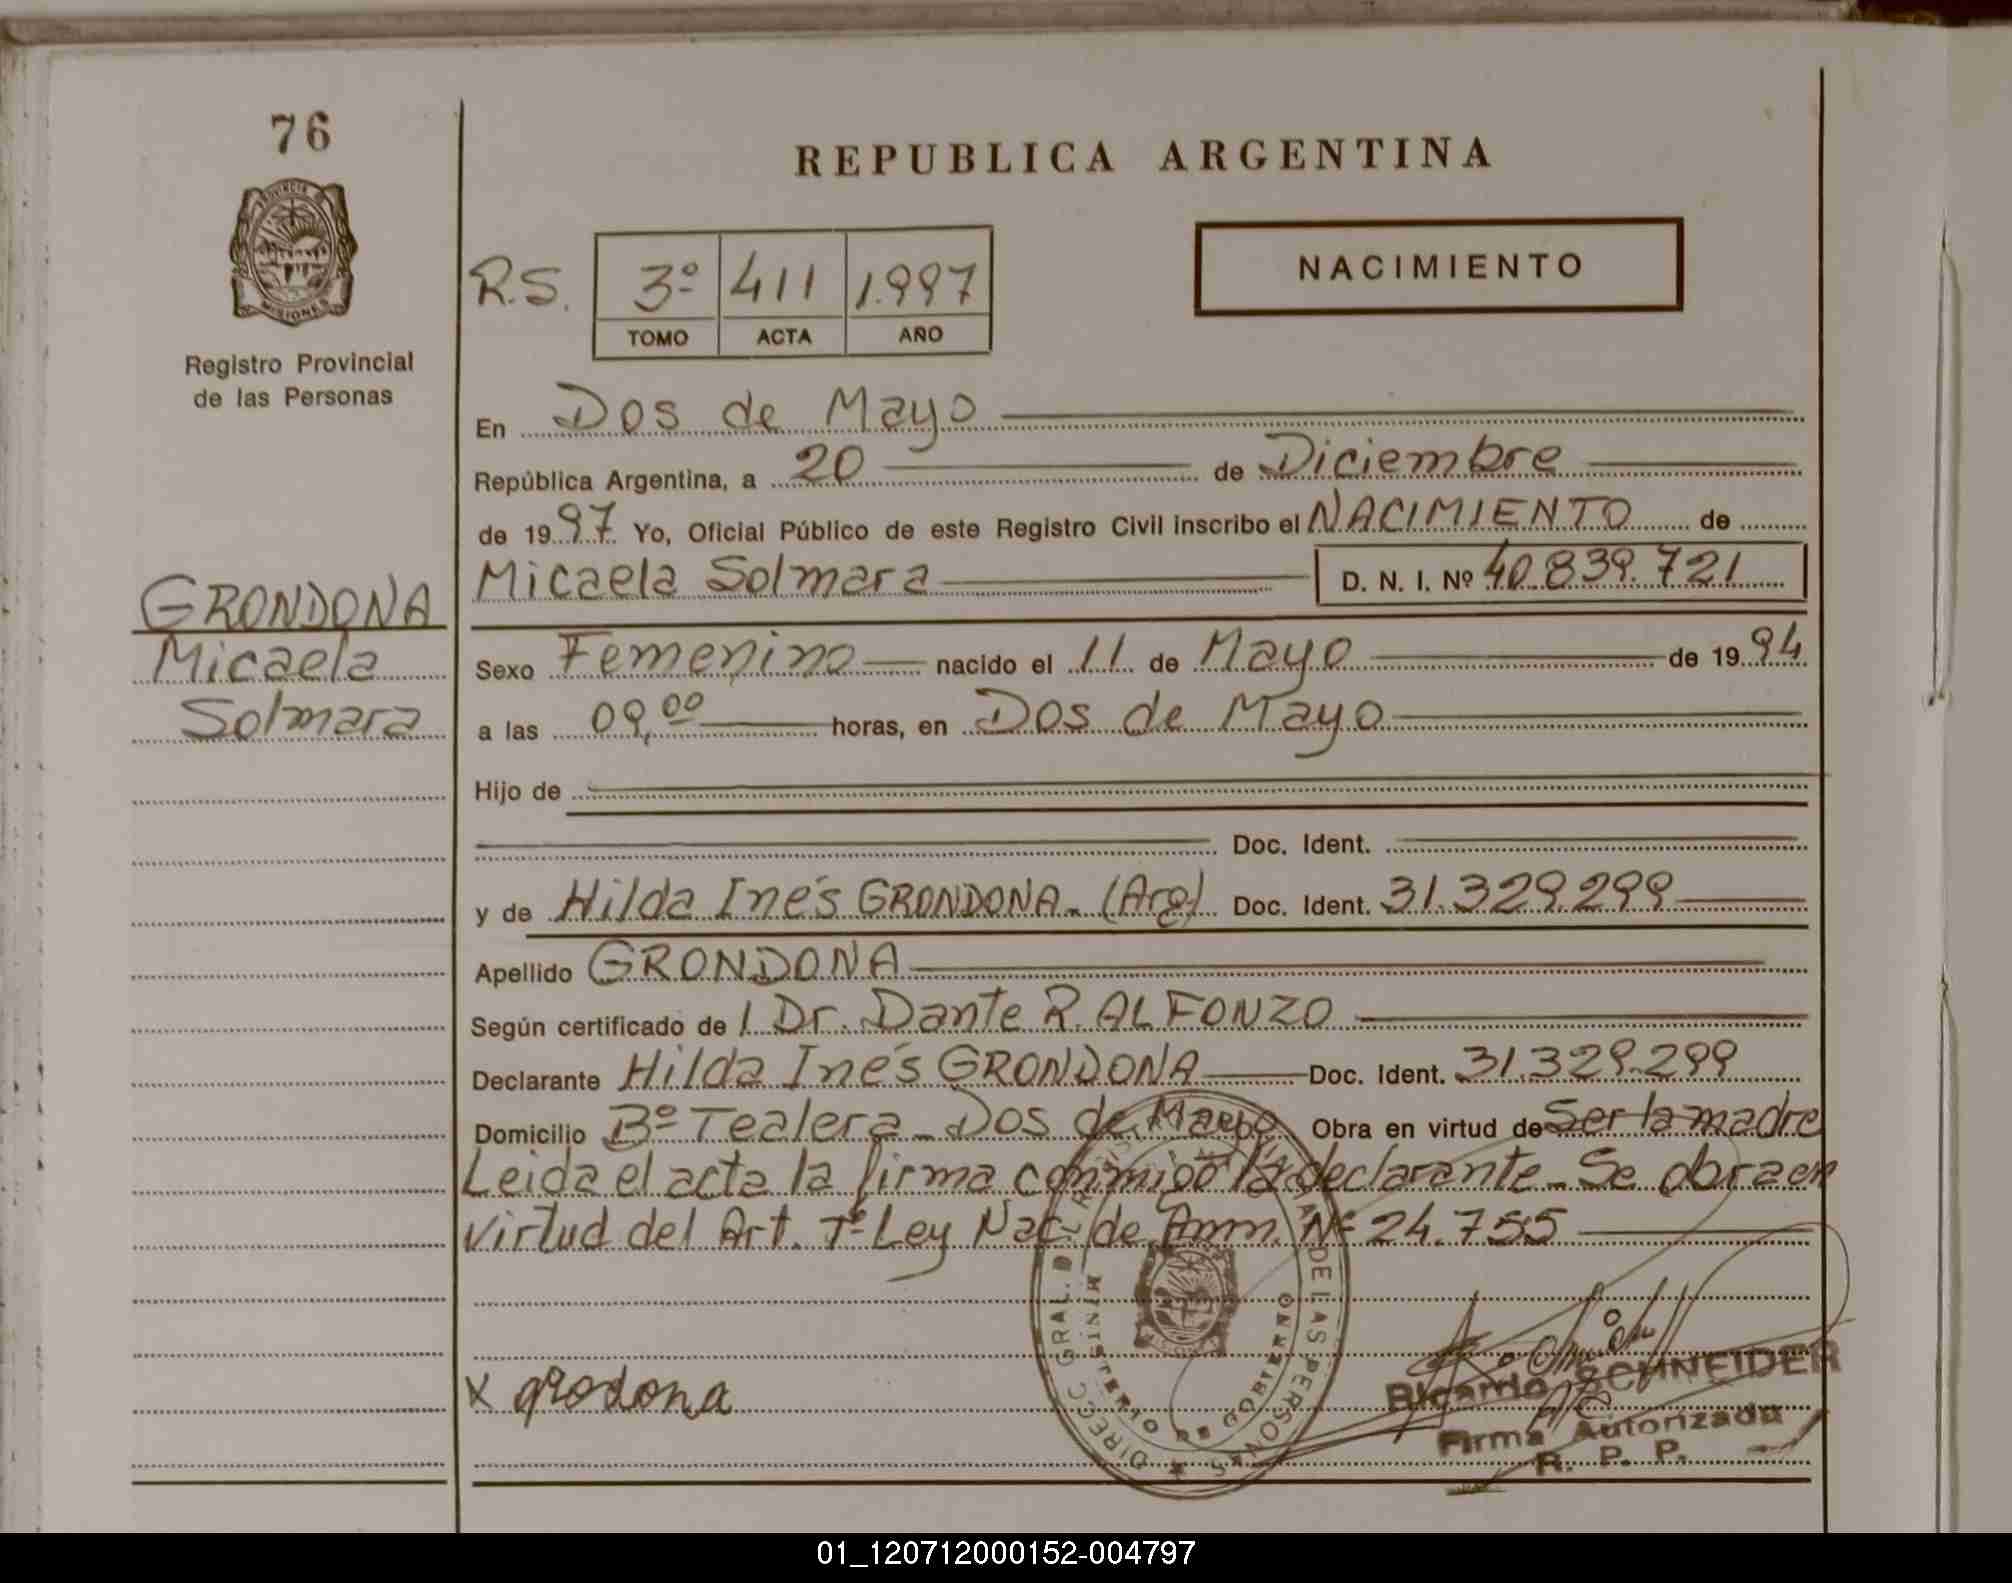 76
PROVINCIA
MISIONES
Registro Provincial
de las Personas
GRONDONA
Micaela
Solmara
REPUBLICA ARGENTINA
R.S. 3º 411 1.997
TOMO ACTA AÑO
NACIMIENTO
En Dos de Mayo
República Argentina, a 20 de Diciembre
de 1997 Yo, Oficial Público de este Registro Civil inscribo el NACIMIENTO de
Micaela Solmara D. N. I. Nº 40.839.721
Sexo Femenino nacido el 11 de Mayo de 1994
a las 09,00 horas, en Dos de Mayo
Hijo de
Doc. Ident.
y de Hilda Inés GRONDONA. (Arg) Doc. Ident. 31.329.299
Apellido GRONDONA
Según certificado de / Dr. Dante R. ALFONZO
Declarante Hilda Inés GRONDONA Doc. Ident. 31.329.299
Domicilio Bº Tealera - Dos de Mayo Obra en virtud de Ser la madre
Leida el acta la firma conmigo la declarante - Se obra en
virtud del Art. 7º Ley Nac. de Amn. Nº 24.755
x grodona
DIRECC GRAL. DEL REGISTRO DE LAS PERSONAS
MINISTERIO DE GOBIERNO
Ricardo SCHNEIDER
Firma Autorizada
R. P. P.
01_120712000152-004797